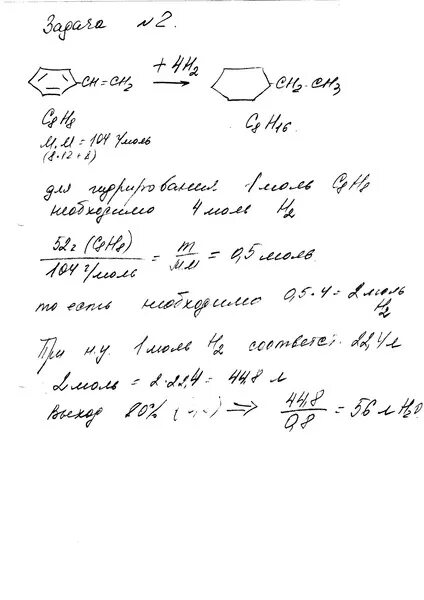 Задача №2.
CH=CH2 +4H2 CH2-CH3
C8H8 C8H16
М.М=104 г/моль
(8·12+8)
для гидрирования 1 моль C8H8
необходимо 4 моль H2
52г (C8H8) / 104 г/моль = m / мм = 0,5 моль
то есть необходимо 0,5·4=2 моль H2
При н.у. 1 моль H2 соответст. 22,4л
2 моль = 2·22,4 = 44,8 л
Выход 80% ⇒ 44,8 / 0,8 = 56 л